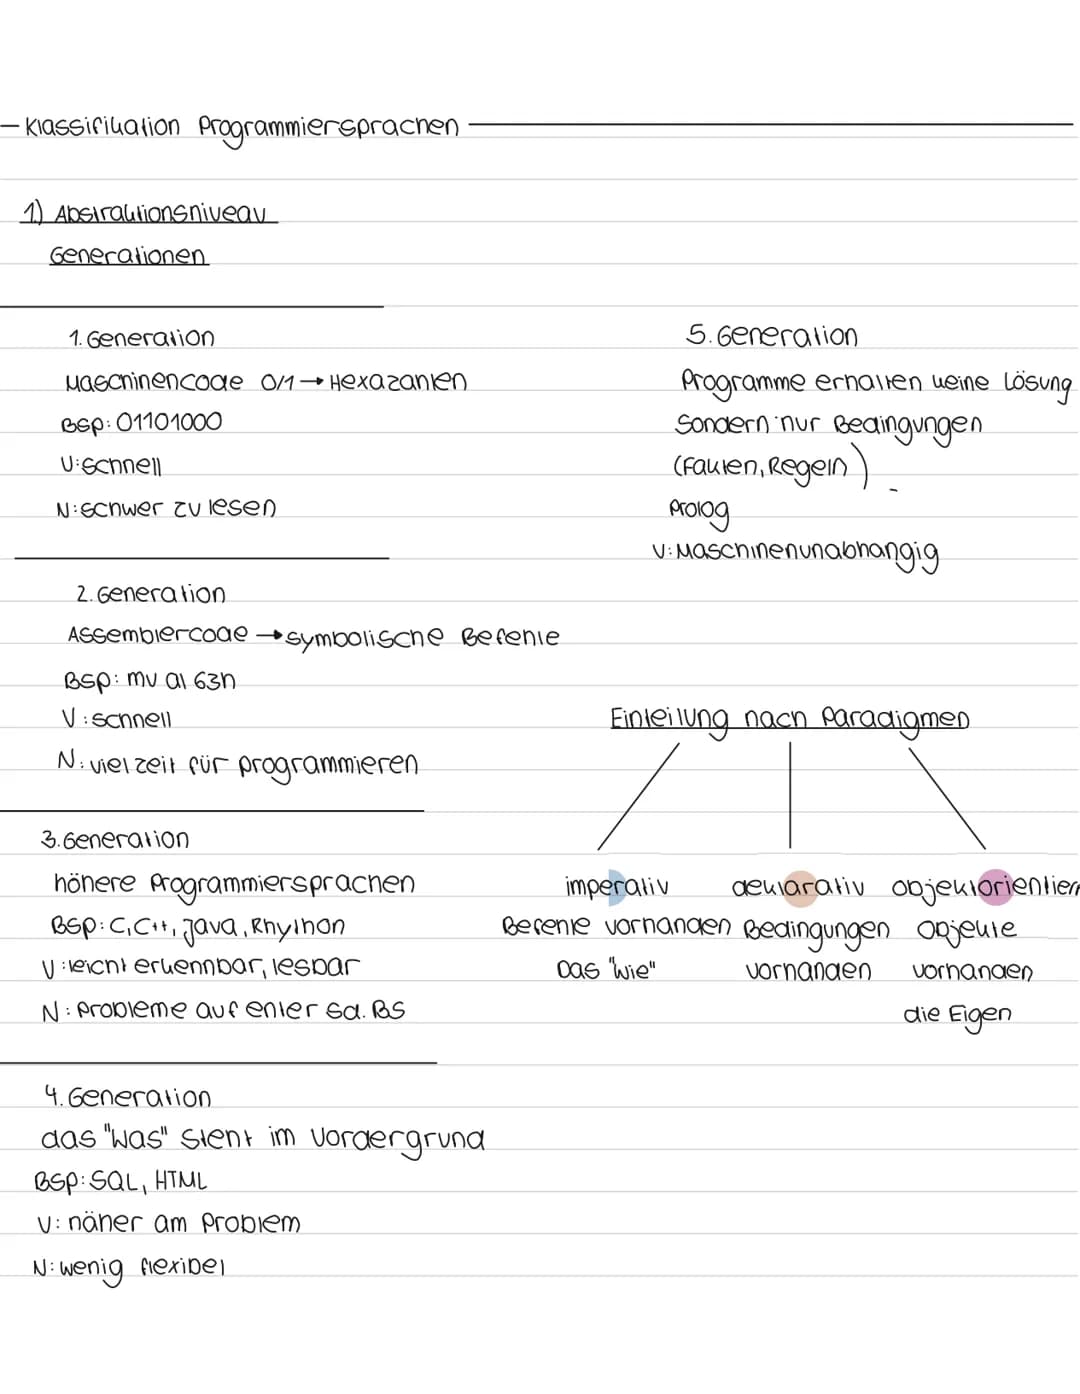 Klassifikation Programmiersprachen
1) Abstraktionsniveau
Generationen
1. Generation
Maschinencode 0/1 → Hexazahlen
BSP: 01101000
V: Schnell
N: Schwer zu lesen
2. Generation
Assemblercode → symbolische Befehle
BSP: mv al 63h
V: schnell
N: viel zeit für programmieren
3. Generation
höhere Programmiersprachen
BSP: C, C++, Java, Rhython
V: leicht erkennbar, lesbar
N: Probleme auf enter sd. BS
4. Generation
das "was" steht im Vordergrund
BSP: SQL, HTML
V: näher am Problem
N: wenig flexibel
5. Generation
Programme erhalten keine Lösung
Sondern nur Bedingungen
(Fakten, Regeln)
Prolog
V: Maschinenunabhangig
Einteilung nach Paradigmen
imperativ deklarativ objektorientier
Befehle vorhanden Bedingungen Objekte
Das "wie" vorhanden vorhanden
die Eigen